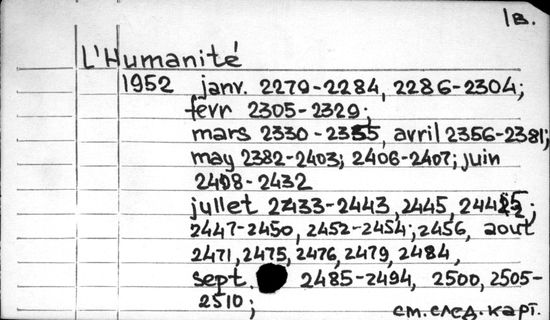 1в.
L'Humanité
1952 janv. 2279-2284, 2286-2304;
fevr 2305-2329;
mars 2330-2355, avril 2356-2381;
may 2382-2403; 2406-2407; juin
2408-2432
jullet 2433-2443, 2445,
2447-2450, 2452-2454; 2456, aout
2471, 2475, 2476, 2479, 2484,
sept. 2485-2494, 2500, 2505-
2510;
см. след. карт.